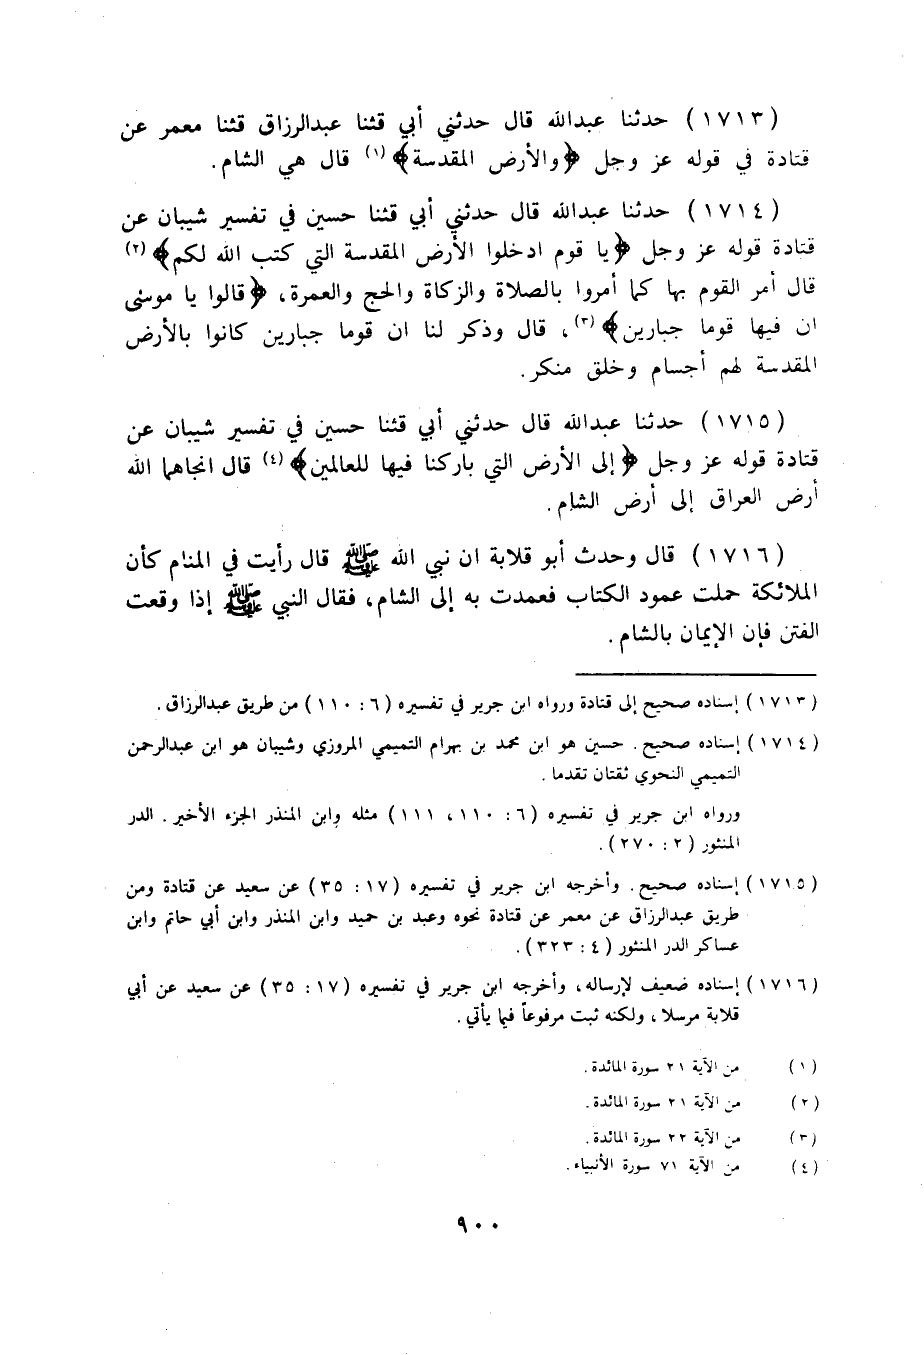 (١٧١٣) حدثنا عبدالله قال حدثني أبي قثنا عبدالرزاق قثنا معمر عن
قتادة في قوله عز وجل ﴿والأرض المقدسة﴾ (١) قال هي الشام.
(١٧١٤) حدثنا عبدالله قال حدثني أبي قثنا حسين في تفسير شيبان عن
قتادة قوله عز وجل ﴿يا قوم ادخلوا الأرض المقدسة التي كتب الله لكم﴾ (٢)
قال أمر القوم بها كما أمروا بالصلاة والزكاة والحج والعمرة، ﴿قالوا يا موسى
ان فيها قوما جبارين﴾ (٣)، قال وذكر لنا ان قوما جبارين كانوا بالأرض
المقدسة لهم أجسام وخلق منكر.
(١٧١٥) حدثنا عبدالله قال حدثني أبي قثنا حسين في تفسير شيبان عن
قتادة قوله عز وجل ﴿إلى الأرض التي باركنا فيها للعالمين﴾ (٤) قال انجاهما الله
أرض العراق إلى أرض الشام.
(١٧١٦) قال وحدث أبو قلابة ان نبي الله ﷺ قال رأيت في المنام كأن
الملائكة حملت عمود الكتاب فعمدت به إلى الشام، فقال النبي ﷺ إذا وقعت
الفتن فإن الإيمان بالشام.
(١٧١٣) إسناده صحيح إلى قتادة ورواه ابن جرير في تفسيره (٦: ١١٠) من طريق عبدالرزاق.
(١٧١٤) إسناده صحيح. حسين هو ابن محمد بن بهرام التميمي المروزي وشيبان هو ابن عبدالرحمن
التميمي النحوي ثقتان تقدما.
ورواه ابن جرير في تفسيره (٦: ١١٠، ١١١) مثله وابن المنذر الجزء الأخير. الدر
المنثور (٢: ٢٧٠).
(١٧١٥) إسناده صحيح. وأخرجه ابن جرير في تفسيره (١٧: ٣٥) عن سعيد عن قتادة ومن
طريق عبدالرزاق عن معمر عن قتادة نحوه وعبد بن حميد وابن المنذر وابن أبي حاتم وابن
عساكر الدر المنثور (٤: ٣٢٣).
(١٧١٦) إسناده ضعيف لإرساله، وأخرجه ابن جرير في تفسيره (١٧: ٣٥) عن سعيد عن أبي
قلابة مرسلا، ولكنه ثبت مرفوعاً فيما يأتي.
(١) من الآية ٢١ سورة المائدة.
(٢) من الآية ٢١ سورة المائدة.
(٣) من الآية ٢٢ سورة المائدة.
(٤) من الآية ٧١ سورة الأنبياء.
٩٠٠